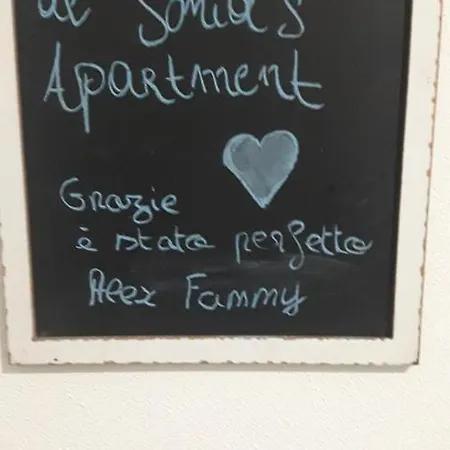 at Sonia's
Apartment
Grazie
è stato perfetto
Alex Fammy